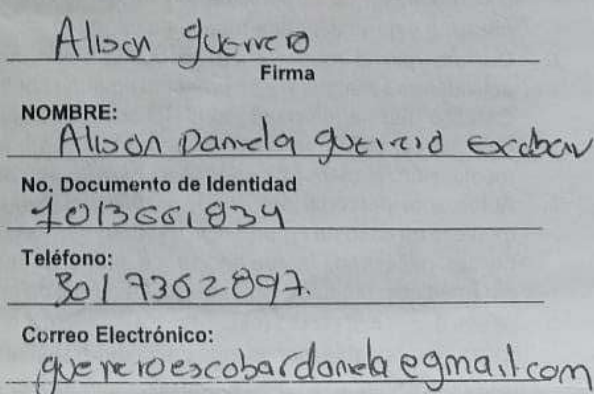 Alison guerrero
Firma
NOMBRE:
Alison Daniela guerrero Escobar
No. Documento de Identidad
1013661834
Teléfono:
3017362897.
Correo Electrónico:
guerreroescobardaniela@gmail.com